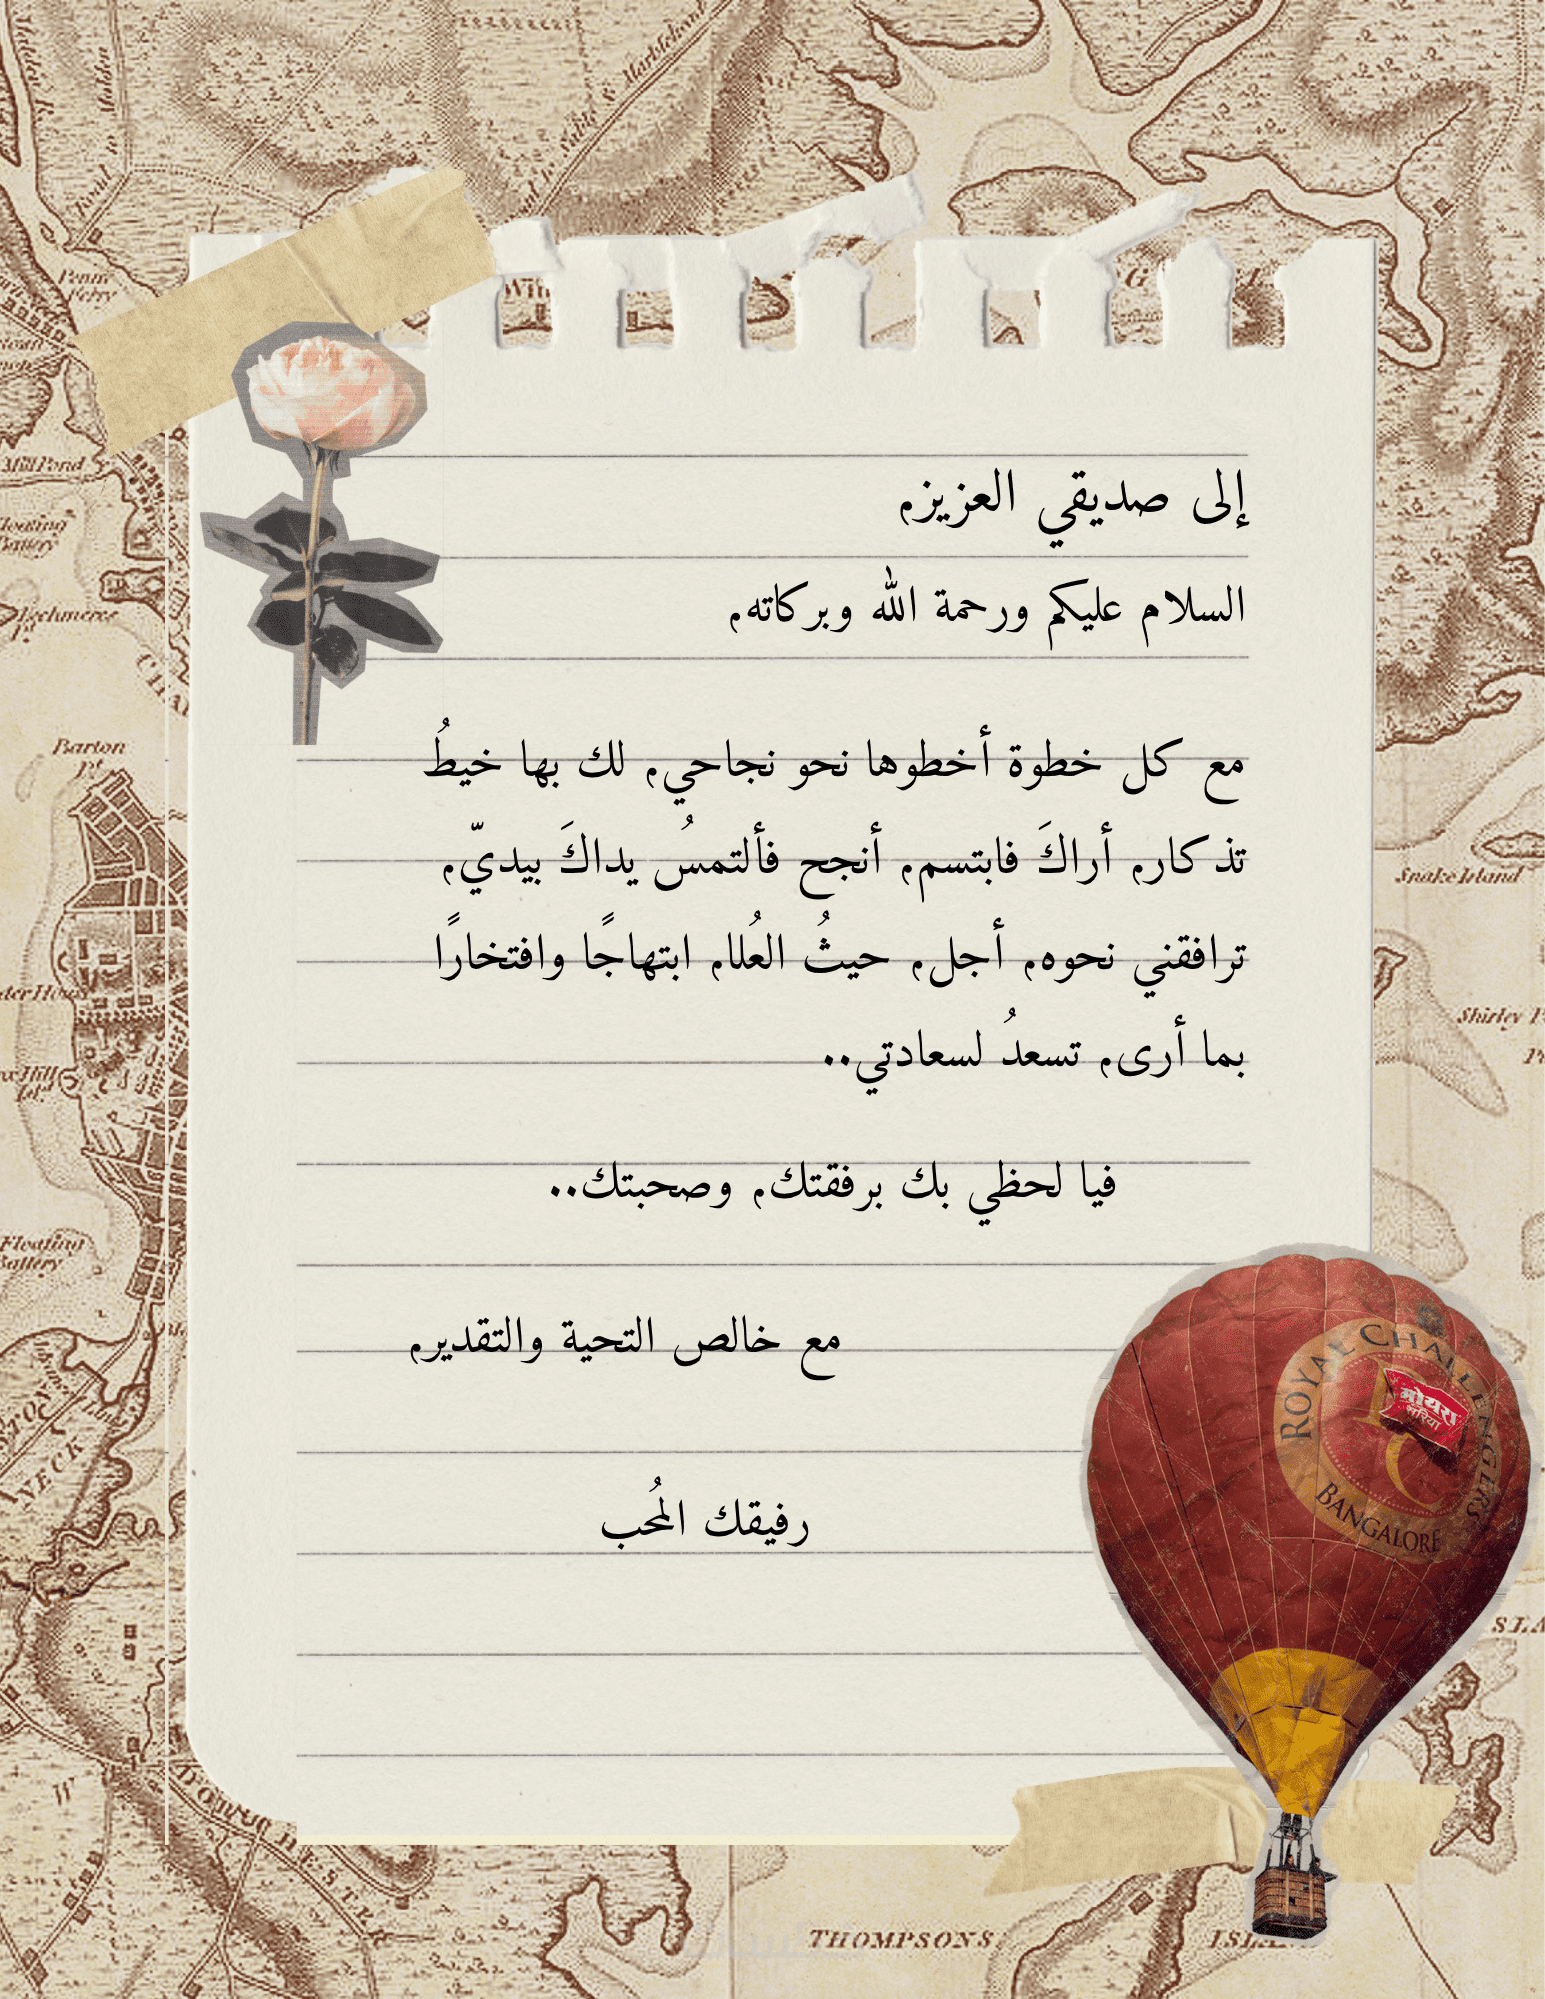 إلى صديقي العزيز،
السلام عليكم ورحمة الله وبركاته،
مع كل خطوة أخطوها نحو نجاحي، لك بها خيطُ
تذكار، أراكَ فابتسم، أنجح فألتمسُ يداكَ بيديّ،
ترافقني نحوه، أجل، حيثُ العُلا، ابتهاجًا وافتخارًا
بما أرى، تسعدُ لسعادتي..
فيا لحظي بك برفقتك، وصحبتك..
مع خالص التحية والتقدير،
رفيقك المُحب
ROYAL CHALLENGERS
BANGALORE
मोयरा
सरिया
Barton
Pt.
Mill Pond
Penny
Ferry
Floating
Battery
Snake Island
Floating
Battery
NECK
THOMPSONS